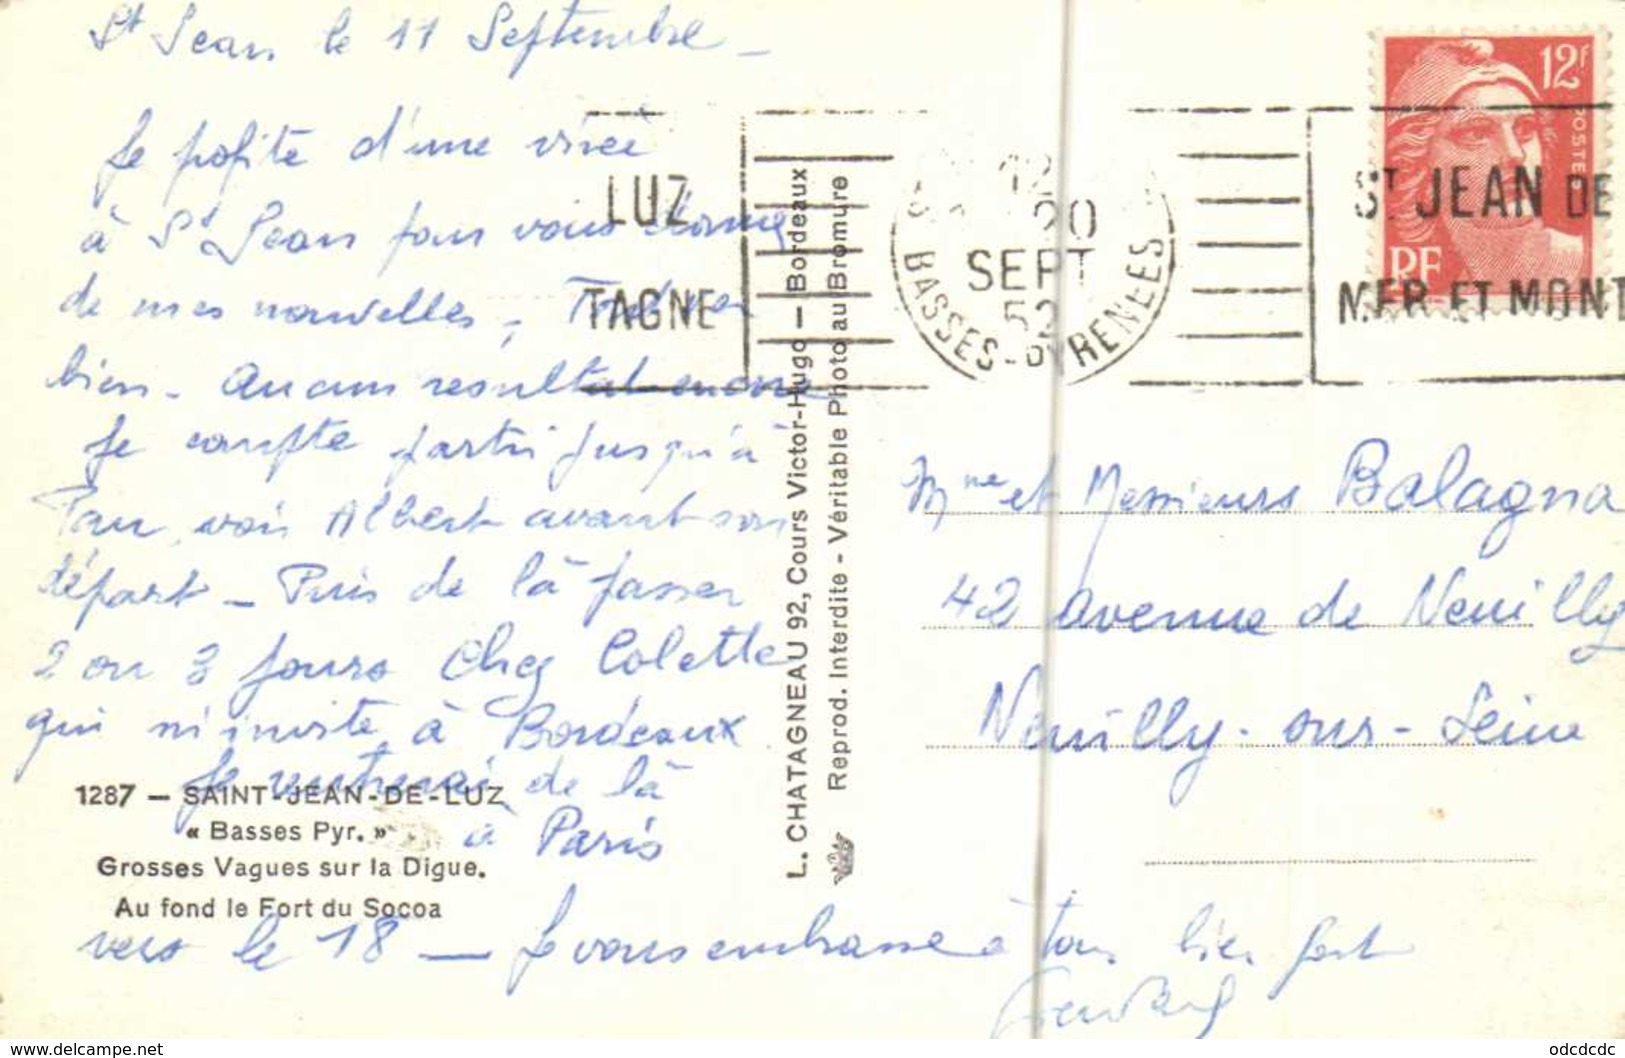 St Jean le 11 Septembre -
Je profite d'une virée
à St Jean pour vous donner
de mes nouvelles,
bien - Aucun résultat encore
Je compte partir jusqu'à
Pau, voir Albert avant son
départ - Puis de là passer
2 ou 3 jours chez Colette
qui m'invite à Bordeaux
Je rentrerai de là
à Paris
vers le 18 - Je vous embrasse à tous bien fort
1287 - SAINT-JEAN-DE-LUZ
« Basses Pyr. »
Grosses Vagues sur la Digue.
Au fond le Fort du Socoa
L. CHATAGNEAU 92, Cours Victor-Hugo - Bordeaux
Reprod. Interdite - Véritable Photo au Bromure
LUZ
TAGNE
12
20
SEPT
52
BASSES-PYRENEES
12F
POSTES
RF
ST JEAN DE
MER ET MONT
Mme et Messieurs Balagna
42 avenue de Neuilly
Neuilly-sur-Seine
www.delcampe.net
odcdcdc